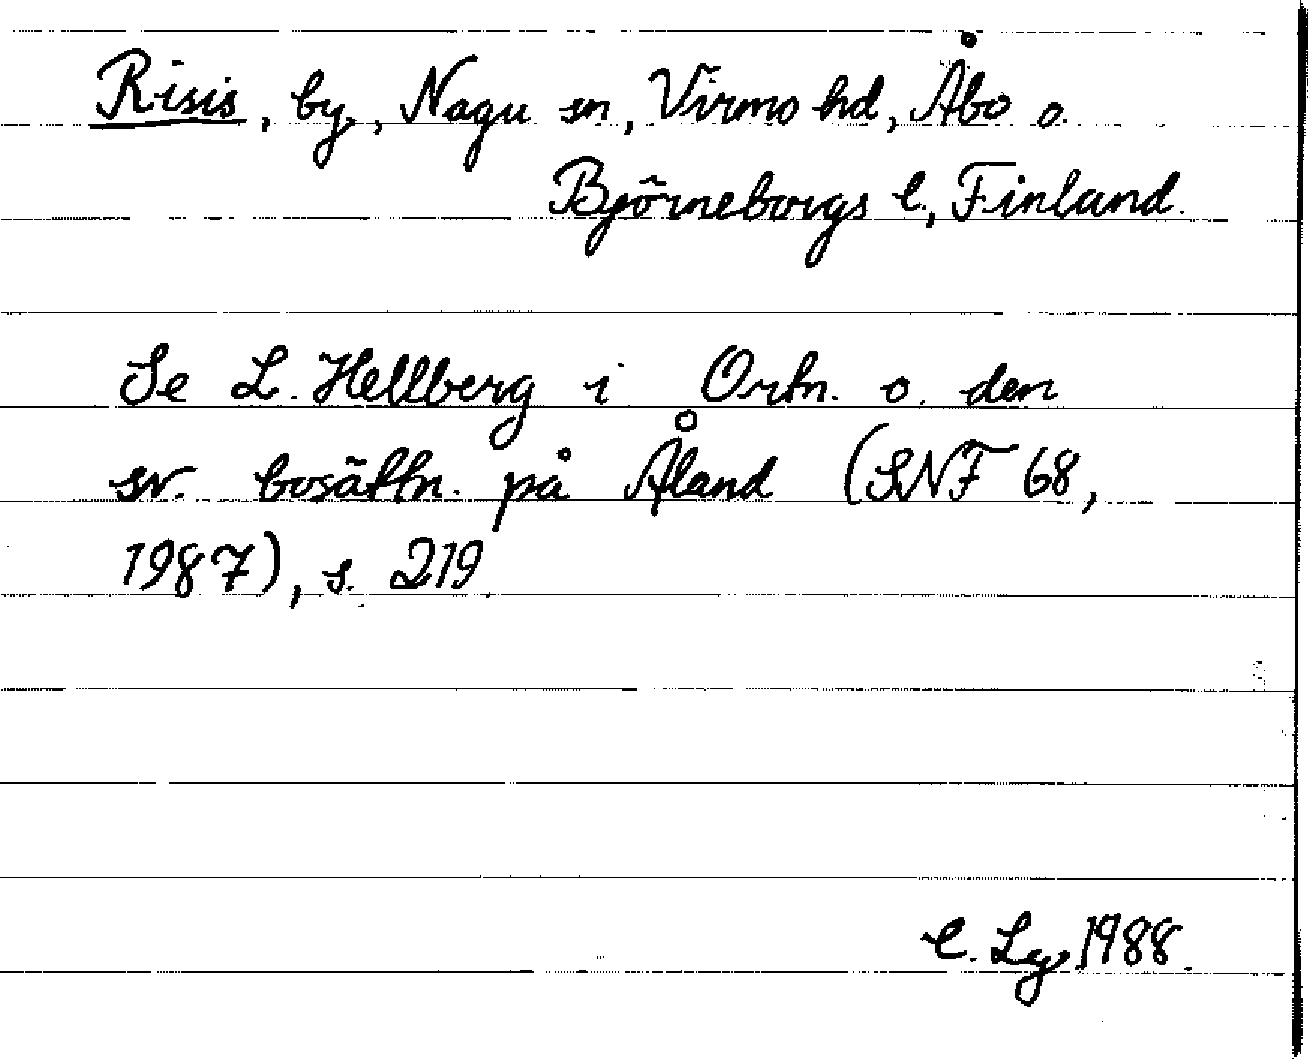 Risis, by, Nagu sn, Virmo hd, Åbo o.
Björneborgs l., Finland.
Se L. Hellberg i Ortn. o. den
sv. bosättn. på Åland (SNF 68,
1987), s. 219.
C. Lg. 1988.